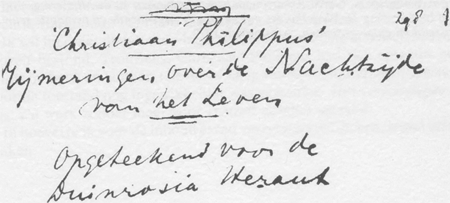 298
'Christiaan Philippus'
Mijmeringen over de Nachtzijde
van het Leven
Opgeteekend voor de
Duinrosia Heraut